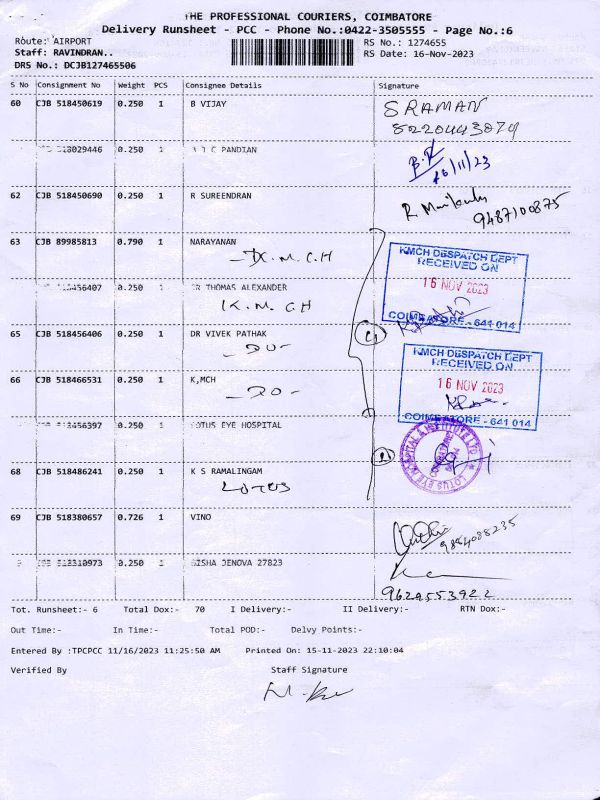 THE PROFESSIONAL COURIERS, COIMBATORE
Delivery Runsheet - PCC - Phone No.:0422-3505555 - Page No.:6
Route: AIRPORT
Staff: RAVINDRAN..
DRS No.: DCJB127465506
RS No.: 1274655
RS Date: 16-Nov-2023
S No Consignment No Weight PCS Consignee Details Signature
60 CJB 518450619 0.250 1 B VIJAY
SRAMAN
8220443079
0.250 1 PANDIAN
16/11/23
62 CJB 518450690 0.250 1 R SUREENDRAN
R
9487100875
63 CJB 89985813 0.790 1 NARAYANAN
K.M.C.H
KMCH DESPATCH DEPT
RECEIVED ON
16 NOV 2023
COIMBATORE - 641 014
0.250 1 DR THOMAS ALEXANDER
K.M.C.H
65 CJB 518456406 0.250 1 DR VIVEK PATHAK
- DO -
66 CJB 518466531 0.250 1 K,MCH
- DO -
KMCH DESPATCH DEPT
RECEIVED ON
16 NOV 2023
COIMBATORE - 641 014
0.250 1 LOTUS EYE HOSPITAL
LOTUS EYE HOSPITAL & INSTITUTE LTD
68 CJB 518486241 0.250 1 K S RAMALINGAM
LOTUS
69 CJB 518380657 0.726 1 VINO
9884088235
0.250 1 JENOVA 27823
9629553922
Tot. Runsheet:- 6 Total Dox:- 70 I Delivery:- II Delivery:- RTN Dox:-
Out Time:- In Time:- Total POD:- Delvy Points:-
Entered By :TPCPCC 11/16/2023 11:25:50 AM Printed On: 15-11-2023 22:10:04
Verified By Staff Signature